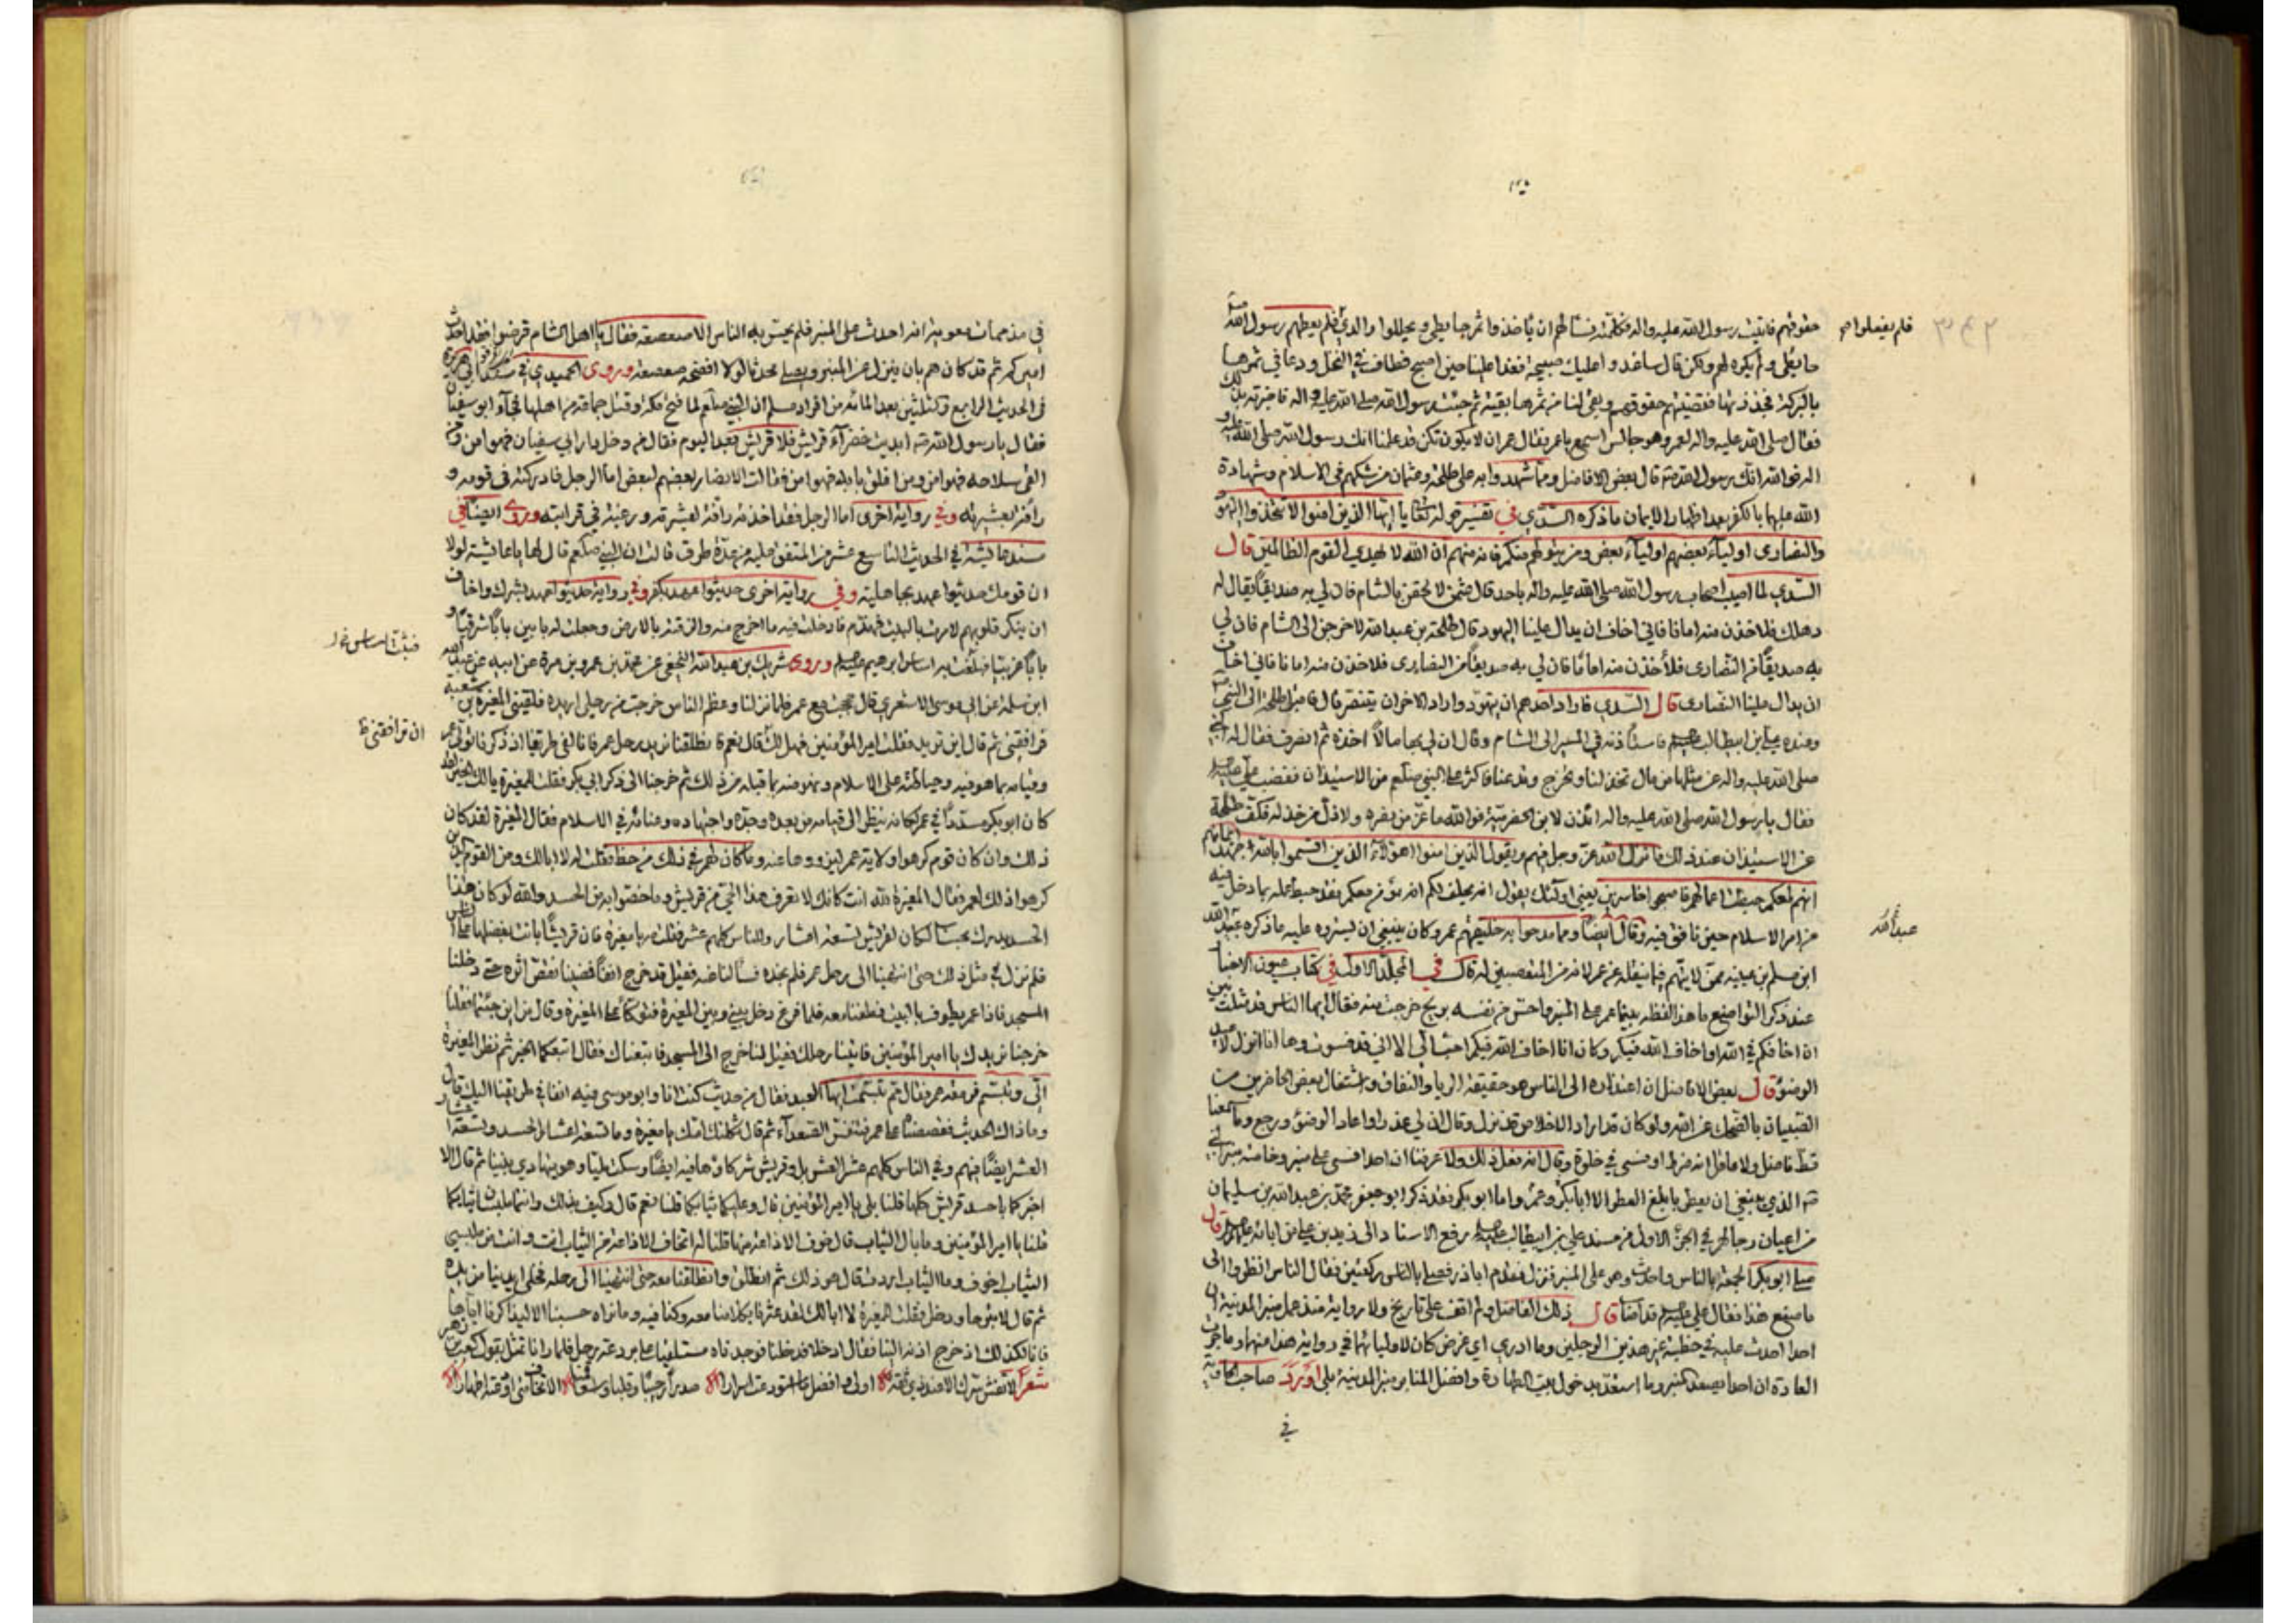 حقوقهم فاتيت رسول الله صلى الله عليه واله فكلمته فسالهم ان ياخذوا ثمر حايطي ويحللوا والدي فلم يعطهم رسول الله ص
فلم يفعلوا
حايطي ولم يكسره لهم ولكن قال ساغدو عليك صبيحة فغدا علينا حين اصبح فطاف في النخل ودعا في ثمرها
بالبركة فجذذتها فقضيتهم حقوقهم وبقي لنا من ثمرها بقية ثم جئت رسول الله صلى الله عليه واله فاخبرته بذلك
فقال صلى الله عليه واله لعمر وهو جالس اسمع يا عمر فقال عمر ان لا يكون تكن قد علمنا انك رسول الله صلى الله عليه و
اله فوالله انك رسول الله قال بعض الافاضل ومما شهدوا به على طلحة وعثمان من شكهم في الاسلام وشهادة
الله عليهما بالكفر بعد اظهار الايمان ما ذكره السدي في تفسير قوله تعالى يا ايها الذين امنوا لا تتخذوا اليهود
والنصارى اولياء بعضهم اولياء بعض ومن يتولهم منكم فانه منهم ان الله لا يهدي القوم الظالمين قال
السدي لما اصيب اصحاب رسول الله صلى الله عليه واله باحد قال عثمن لالحقن بالشام فان لي به صديقا يقال له
دهلك فلاخذن منه امانا فاني اخاف ان يدال علينا اليهود قال طلحة بن عبيد الله لاخرجن الى الشام فان لي
به صديقا من النصارى فلأخذن منه امانا فاني اخاف
ان يدال علينا النصارى قال السدي فاراد احدهم ان يتهود واراد الاخر ان يتنصر قال فاقبل طلحة الى النبي ص
وعنده علي بن ابيطالب فاستاذنه في المسير الى الشام وقال ان لي بها مالا اخذه ثم انصرف فقال له النبي
صلى الله عليه واله عن مثلها من حال تخذلنا وتخرج وتدعنا فاكثر على النبي صلعم من الاستيذان فغضب علي
فقال يا رسول الله صلى الله عليه واله ائذن لابن الحضرمية فوالله ما عز من نصره ولا ذل من خذله فكف طلحة
عن الاستيذان عند ذلك فانزل الله عز وجل فيهم ويقول الذين امنوا اهؤلاء الذين اقسموا بالله جهد ايمانهم
انهم لمعكم حبطت اعمالهم فاصبحوا خاسرين يعني اولئك يقول انه يحلف لكم انه مؤمن معكم فقد حبط عمله بما دخل فيه
من امر الاسلام حين نافق فيه وقال ايضا ومما مدحوا به خليفتهم عمر وكان ينبغي ان يستروه عليه ما ذكره عبد الله
عبد الله
ابن مسلم بن قتيبة ممن لا يتهم فيما ينقله عن عمر لانه من المتعصبين له قال في المجلد الاول في كتاب عيون الاخبار
عند ذكر التواضع ما هذا لفظه بينما عمر على المنبر احس من نفسه بريح خرجت منه فقال ايها الناس قد مثلت بين
ان اخافكم في الله او اخاف الله فيكم وكان ان اخاف الله فيكم احب الي الا اني قد فسوت وها انا انزل لاعيد
الوضوء قال بعض الافاضل ان اعتذاره الى الناس هو حقيقة الريا والنفاق واشتغال بعض الحاضرين من
الصبيان بالضحك عن الله ولو كان قد اراد الاخلاص قد نزل وقال ان لي عذرا واعاد الوضوء ورجع وما سمعنا
قط فاضل ولا عاقل انه ضرط او فسى في خلوة وقال انه فعل ذلك ولا عرفنا ان احدا فسى على منبر وخاصة منبر النبي
ص الذي ينبغي ان يعظم بابلغ التعظيم الا ابا بكر وعمر واما ابو بكر فقد ذكر ابو جعفر محمد بن عبد الله بن سليمان
من اعيان رجالهم في الجزء الاول من مسند علي بن ابيطالب رفع الاسناد الى زيد بن علي عن ابائه قال
صلى ابو بكر الجمعة بالناس واحدث وهو على المنبر فنزل فقدم اباذر فصلى بالناس ركعتين فقال الناس انظروا الى
ما صنع هذا فقال علي قد اضا قال ذلك الفاضل ولم اقف على تاريخ ولا رواية منذ عمل منبر المدينة ان
احدا احدث عليه في خطبته غير هذين الرجلين وما ادري اي غرض كان لاوليائهما في رواية هذا منهما وما جرت
العادة ان احدا يصعد المنبر وما استعد بدخول بيت الطهارة وافضل المنابر منبر المدينة بلى اورد صاحب
في
في مذمات معوية انه احدث على المنبر فلم يحس به الناس الا صعصعة فقال يا اهل الشام قرضوا فقد احدث
اميركم ثم قد كان هم بان ينزل عن المنبر ويصلي محدثا لولا افضحه صعصعة وروى الحميدي في مسند ابي هريرة
في الحديث الرابع وثلثين بعد المائة من افراد مسلم ان النبي صلعم لما فتح مكة وقتل جماعة من اهلها فجاء ابو سفين
فقال يا رسول الله ابيدت خضراء قريش فلا قريش بعد اليوم فقال من دخل دار ابي سفيان فهو امن ومن
القى سلاحه فهو امن ومن اغلق بابه فهو امن فقالت الانصار بعضهم لبعض اما الرجل فادركته في قومه و
رافة لعشيرته وفي رواية اخرى اما الرجل فقد اخذته رافة لعشيرته ورغبة في قرابته وروى ايضا في
مسند عايشة في الحديث التاسع عشر من المتفق عليه من عدة طرق قالت ان النبي صلعم قال لها يا عايشة لولا
ان قومك حديثوا عهد بجاهلية وفي رواية اخرى حديثوا عهد بكفر وفي رواية حديثوا عهد بشرك واخاف
ان ينكر قلوبهم لامرت بالبيت فهدم فادخلت فيه ما اخرج منه والزقته بالارض وجعلت له بابين بابا شرقيا و
بابا غربيا فبلغت به اساس ابرهيم وروى شريك بن عبد الله النخعي عن محمد بن عمرو بن مرة عن ابيه عن عبد الله
ابن سلمة عن ابي موسى الاشعري قال حججت مع عمر فلما نزلنا وعظم الناس خرجت من رحلي اريده فلقيني المغيرة بن شعبة
ان ترافقني ظ
فرافقني ثم قال اين تريد فقلت امير المؤمنين فهل لك قال نعم فانطلقنا نريد رحل عمر فانا لفي طريقنا اذ ذكرنا تولى عمر
وقيامه بما هو فيه وحياطته على الاسلام ونهوضه بما قبله من ذلك ثم خرجنا الى ذكر ابي بكر فقلت للمغيرة يا لك الخير لقد
كان ابو بكر مسددا في عمر كانه ينظر الى قيامه من بعده وجده واجتهاده وعنائه في الاسلام فقال المغيرة لقد كان
ذلك وان كان قوم كرهوا ولاية عمر ليزووها عنه وما كان لهم في ذلك من حظ فقلت له لا ابا لك ومن القوم الذين
كرهوا ذلك لعمر فقال المغيرة لله انت كانك لا تعرف هذا الحي من قريش وما خصوا به من الحسد والله لو كان هذا
الحسد يدرك بحساب لكان لقريش تسعة اعشار وللناس كلهم عشر فقلت مه يا مغيرة فان قريشا بانت بفضلها على الناس
فلم نزل في مثل ذلك حتى انتهينا الى رحل عمر فلم نجده فسالنا عنه فقيل قد خرج انفا فمضينا نقفو اثره حتى دخلنا
المسجد فاذا عمر يطوف بالبيت فطفنا معه فلما فرغ دخل بيني وبين المغيرة فتوكأ على المغيرة وقال من اين جئتما فقلنا
خرجنا نريدك يا امير المؤمنين فاتينا رحلك فقيل لنا خرج الى المسجد فاتبعناك فقال اتبعكما الخير ثم نظر المغيرة
الي وتبسم فرمقه عمر فقال مم تبسمت ايها العبد فقال من حديث كنت انا وابو موسى فيه انفا في طريقنا اليك قال
وما ذاك الحديث فقصصنا على عمر فتنفس الصعداء ثم قال ثكلتك امك يا مغيرة وما تسعة اعشار الحسد وتسعة اعشار
العشر ايضا فيهم وفي الناس كلهم عشر العشر بل وقريش شركاؤها فيه ايضا وسكت مليا وهو يتهادى بيننا ثم قال الا
اخبركما باحسد قريش كلها قلنا بلى يا امير المؤمنين قال وعليكما ثيابكما قلنا نعم قال وكيف بذلك وانتما ملبسان ثيابكما
قلنا يا امير المؤمنين وما بال الثياب قال خوف الاذاعة منها قلنا له اتخاف الاذاعة من الثياب انت وانت من ملبسي
الثياب اخوف وما الثياب اردت قال هو ذلك ثم انطلق وانطلقنا معه حتى انتهينا الى رحله فخلى ايدينا من يده
ثم قال لا تبرحا ودخل فقلت للمغيرة لا ابا لك لقد عثرنا بكلامنا معه وكنا فيه وما نراه حبسنا الا ليذاكرنا اياها
فانا لكذلك اذ خرج اذنه الينا فقال ادخلا فدخلنا فوجدناه مستلقيا على برذعة رحل فلما رانا تمثل بقول كعب بن زهير
شعر لا تفش سرك الا عند ذي ثقة اولى وافضل ما استودعت اسرارا صدرا رحيبا وقلبا واسعا الا تخاف متى اودعته اظهارا